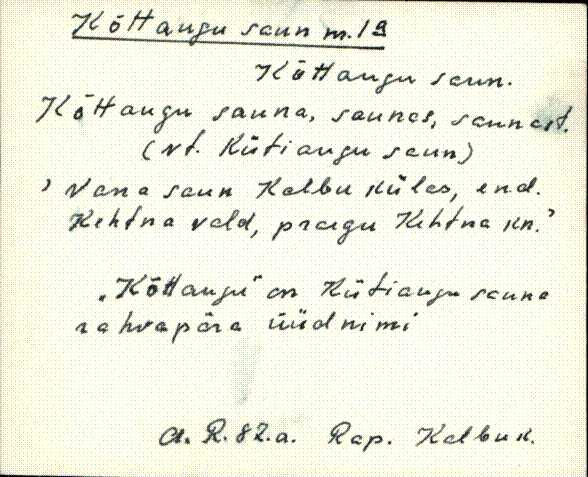 Kõttangu saun m. 19
Kõttangu saun.
Kõttangu sauna, saunas, saunast.
(vt. Kütiangu saun)
' Vana saun Kalbu külas, end.
Kehtna vald, praegu Kehtna kn.'
"Kõttangu" on Kütiangu sauna
rahvapära üüdnimi
A. R. 82.a. Rap. Kalbu k.